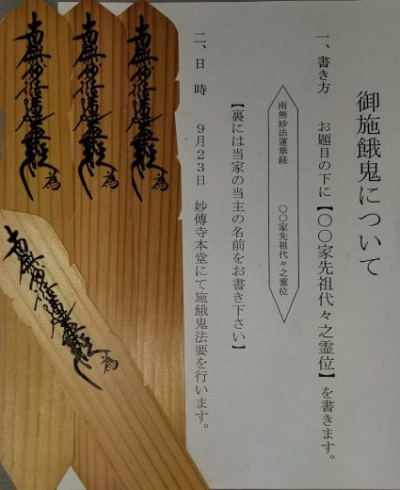 御施餓鬼について
一、書き方　お題目の下に【〇〇家先祖代々之霊位】を書きます。
南無妙法蓮華経　〇〇家先祖代々之霊位
【裏には当家の当主の名前をお書き下さい】
二、日　時　９月２３日　妙傳寺本堂にて施餓鬼法要を行います。
南無妙法蓮華経　為
南無妙法蓮華経　為
南無妙法蓮華経　為
南無妙法蓮華経　為